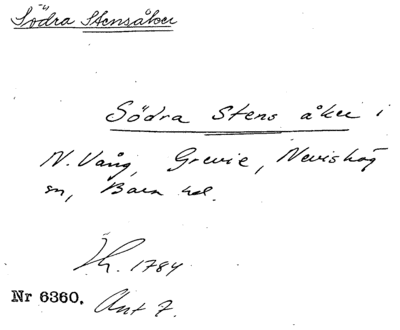 Södra Stensåker
Södra Stens åker i
N. Vång, Grevie, Nevishög
sn, Bara hd.
Jh. 1784
Nr 6360. Ant 7.